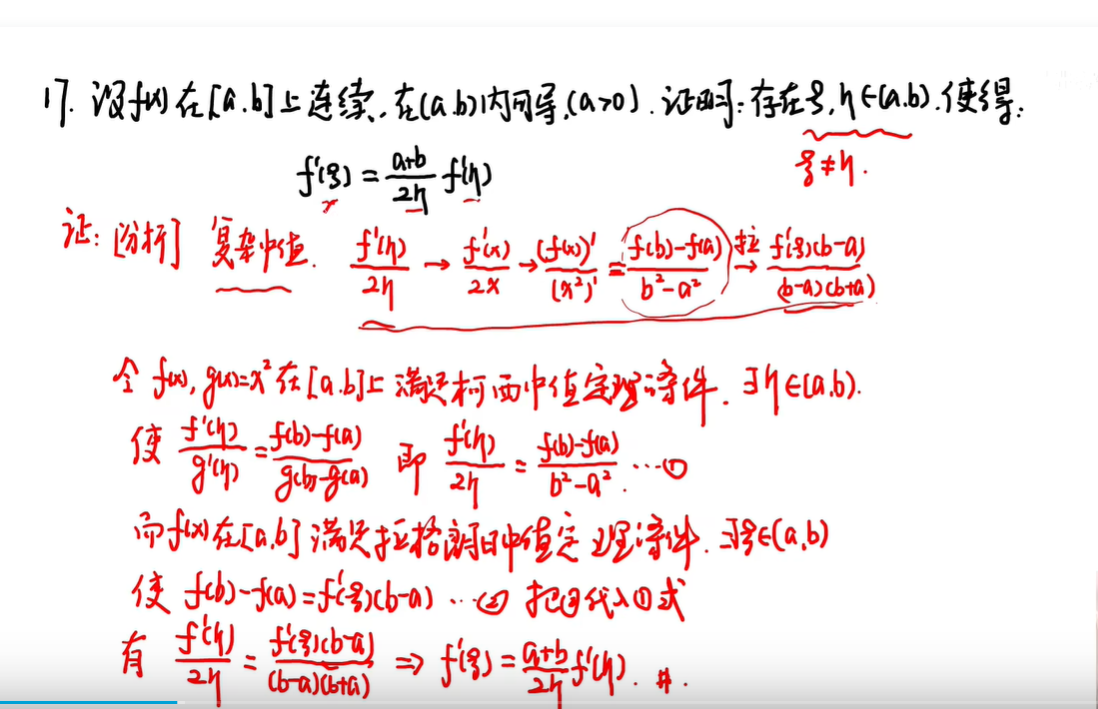 17. 设f(x)在[a.b]上连续.在(a.b)内可导.(a>0).证明:存在ξ,η∈(a.b).使得:
f'(ξ)=\frac{a+b}{2η}f'(η)
ξ≠η.
证:[分析] 复杂中值. \frac{f'(η)}{2η}→\frac{f'(x)}{2x}→\frac{(f(x))'}{(x²)'}=\frac{f(b)-f(a)}{b²-a²} 拉→ \frac{f'(ξ)(b-a)}{(b-a)(b+a)}
令 f(x), g(x)=x² 在[a.b]上满足柯西中值定理条件. ∃η∈(a.b).
使 \frac{f'(η)}{g'(η)}=\frac{f(b)-f(a)}{g(b)-g(a)} 即 \frac{f'(η)}{2η}=\frac{f(b)-f(a)}{b²-a²}. …①
而f(x)在[a.b]满足拉格朗日中值定理条件. ∃ξ∈(a,b)
使 f(b)-f(a)=f'(ξ)(b-a) …② 把②代入①式
有 \frac{f'(η)}{2η}=\frac{f'(ξ)(b-a)}{(b-a)(b+a)} ⇒ f'(ξ)=\frac{a+b}{2η}f'(η). #.